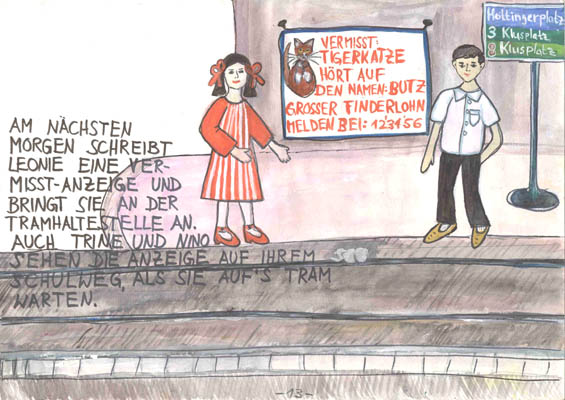 Höltingerplatz
3 Klusplatz
8 Klusplatz
VERMISST:
TIGERKATZE
HÖRT AUF
DEN NAMEN: BUTZ
GROSSER FINDERLOHN
MELDEN BEI: 12'31'56
AM NÄCHSTEN
MORGEN SCHREIBT
LEONIE EINE VER-
MISST-ANZEIGE UND
BRINGT SIE AN DER
TRAMHALTESTELLE AN.
AUCH TRINE UND NINO
SEHEN DIE ANZEIGE AUF IHREM
SCHULWEG, ALS SIE AUF'S TRAM
WARTEN.
-13-